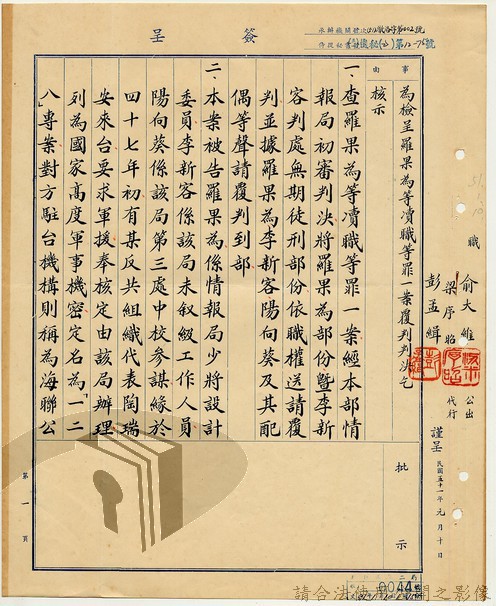 簽呈
事由
為檢呈羅果為等瀆職等罪一案覆判判決乞
核示
一、查羅果為等瀆職等罪一案經本部情
報局初審判決將羅果為部份暨李新
容判處無期徒刑部份依職權送請覆
判並據羅果為李新容陽向葵及其配
偶等聲請覆判到部
二、本案被告羅果為係情報局少將設計
委員李新容係該局未敘級工作人員
陽向葵係該局第三處中校參謀緣於
四十七年初有某反共組織代表陶瑞
安來台要求軍援奉核定由該局辦理
列為國家高度軍事機密定名為「一二
八」專案對方駐台機構則稱為海聯公
職
俞大維公出
梁序昭代行
彭孟緝
謹呈
民國五十一年元月十日
批示
第一頁
0044